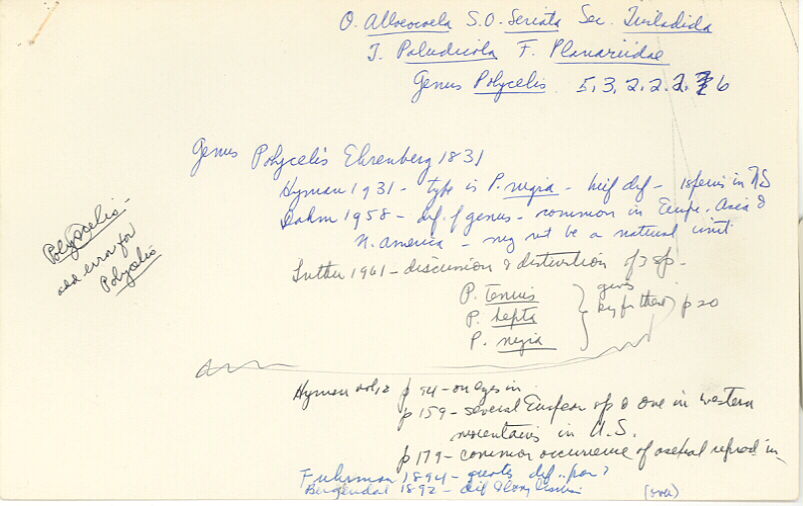 O. Alloeocoela S.O. Seriata Sec. Tricladida
T. Paludicola F. Planariidae
Genus Polycelis 5.3.2.2.2. 6
Genus Polycelis Ehrenberg 1831
Hyman 1931 - type is P. nigra - brief def - in US
Dahm 1958 - def. of genus - common in Europe, Asia &
N. America - may not be a natural unit
Luther 1961 - discussion & distinction of 3 sp -
P. tenuis
P. hepta
P. nigra
gives
key for these
p 20
Polyscelis -
old error for
Polycelis
Hyman vol 2 p 94 - on eyes in
p 159 - several European sp & one in western
mountains in U.S.
p 179 - common occurrence of asexual reprod in
Fuhrman 1894 - quotes def.. ?
Bergendal 1892 - dif